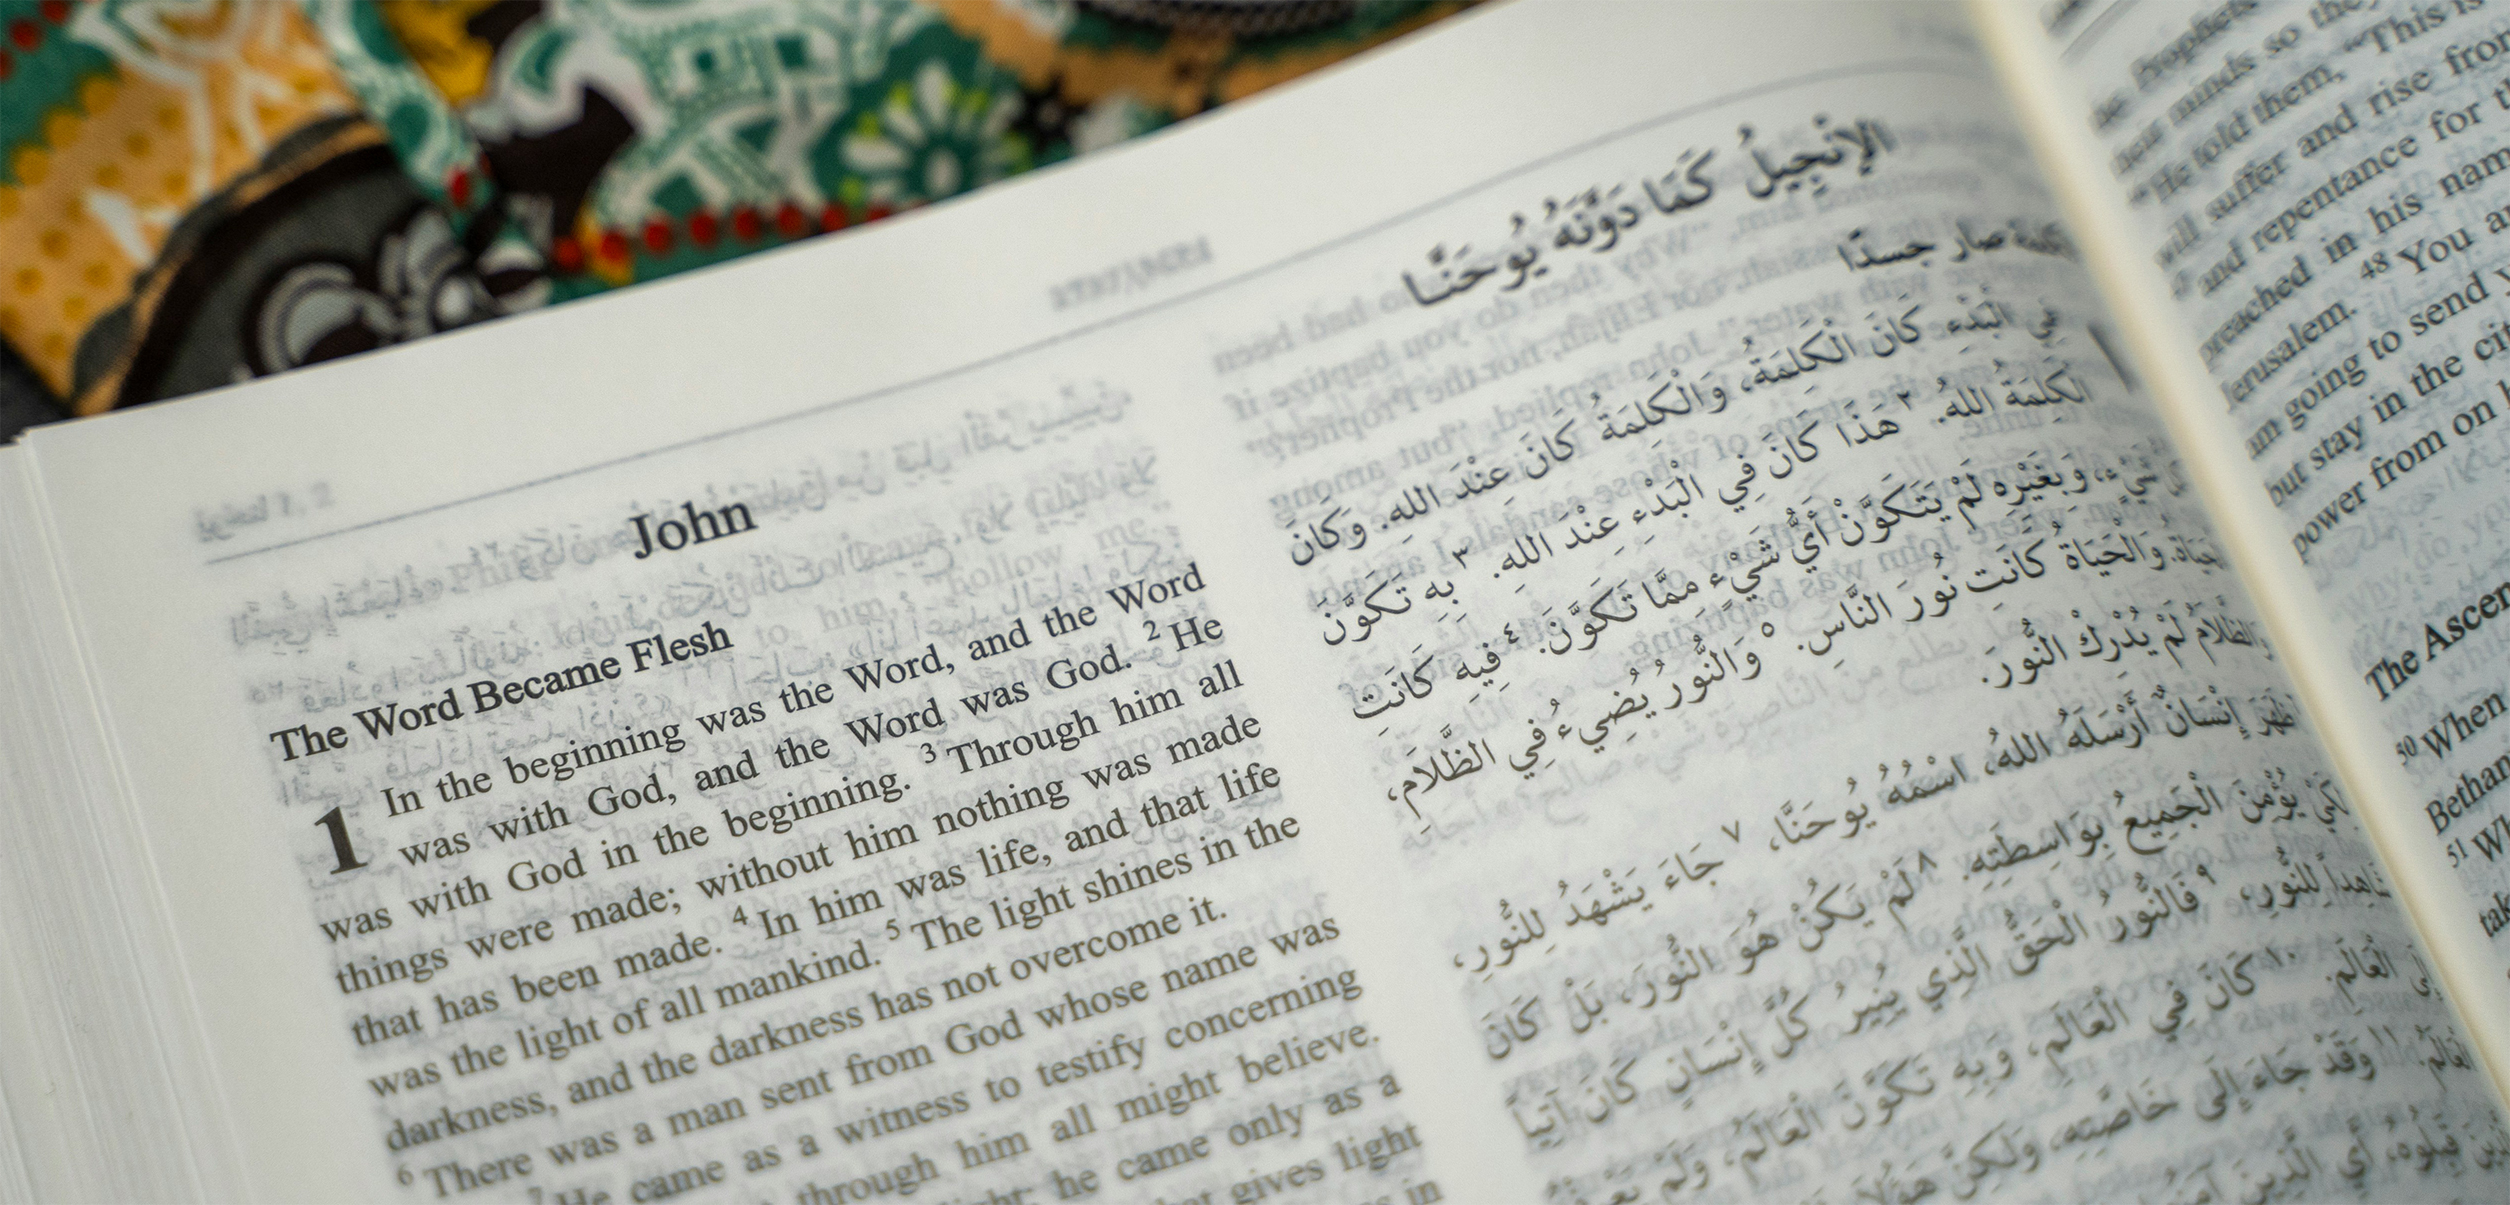 John
The Word Became Flesh
1 In the beginning was the Word, and the Word
was with God, and the Word was God. 2 He
was with God in the beginning. 3 Through him all
things were made; without him nothing was made
that has been made. 4 In him was life, and that life
was the light of all mankind. 5 The light shines in the
darkness, and the darkness has not overcome it.
6 There was a man sent from God whose name was
7 He came as a witness to testify concerning
through him all might believe.
he came only as a
gives light
in
الإِنْجِيلُ كَمَا دَوَّنَهُ يُوحَنَّا
صار جسدًا
فِي الْبَدْءِ كَانَ الْكَلِمَةُ، وَالْكَلِمَةُ كَانَ عِنْدَ اللهِ. وَكَانَ
الْكَلِمَةُ اللهُ. ٢ هَذَا كَانَ فِي الْبَدْءِ عِنْدَ اللهِ. ٣ بِهِ تَكَوَّنَ
شَيْءٍ، وَبِغَيْرِهِ لَمْ يَتَكَوَّنْ أَيُّ شَيْءٍ مِمَّا تَكَوَّنَ. ٤ فِيهِ كَانَتِ
وَالْحَيَاةُ كَانَتِ نُورَ النَّاسِ. ٥ وَالنُّورُ يُضِيءُ فِي الظَّلَامِ،
وَالظَّلَامُ لَمْ يُدْرِكْ النُّورَ.
ظَهَرَ إِنْسَانٌ أَرْسَلَهُ اللهُ، اسْمُهُ يُوحَنَّا، ٧ جَاءَ يَشْهَدُ لِلنُّورِ،
لِكَيْ يُؤْمِنَ الْجَمِيعُ بِوَاسِطَتِهِ. ٨ لَمْ يَكُنْ هُوَ النُّورَ، بَلْ كَانَ
شَاهِداً لِلنُّورِ، ٩ فَالنُّورُ الْحَقُّ الَّذِي يُنِيرُ كُلَّ إِنْسَانٍ كَانَ آتِياً
إِلَى الْعَالَمِ. ١٠ كَانَ فِي الْعَالَمِ، وَبِهِ تَكَوَّنَ الْعَالَمُ، وَلَمْ
الْعَالَمُ. ١١ وَقَدْ جَاءَ إِلَى خَاصَّتِهِ، وَلَكِنَّ
قَبِلُوهُ، أَيِ الَّذِينَ
the Prophets
minds so they
He told them, “This is
will suffer and rise from
and repentance for
preached in his name
Jerusalem. 48 You
am going to send
but stay in the city
power from on
The Ascen
50 When
Bethan
51